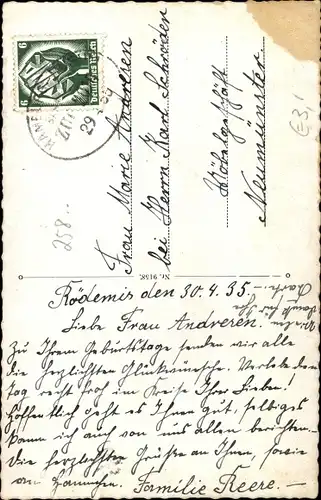 Deutsches Reich
6
6
29
258.
E3,1
Frau Marie Andresen
bei Herrn Karl Schröder
Neumünster.
Nr. 9158.
Rödemis den 30.4.35.
Liebe Frau Andresen.
Zu Ihrem Geburtstage senden wir alle
die herzlichsten Glückwünsche. Verlebe den
Tag recht froh im Kreise Ihrer Lieben!
Hoffentlich geht es Ihnen gut, selbiges
kann ich auch von uns allen berichten.
Die herzlichsten Grüße an Ihnen, sowie
an Familie Reere.
Vielen Dank für Ihre Karte.